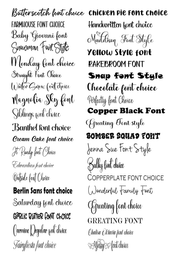 Butterscotch font choice
FARMHOUSE FONT CHOICE
Baby Giovanni font
Samantha Font Style
Monday font choice
Straight Font Choice
Water Sans font choice
Magnolia Sky font
Siblings font choice
Banthel font choice
Cream Cake font choice
font choice
font choice
Buffalo Font Choice
Berlin Sans font choice
Saturday font choice
GARLIC BUTTER FONT CHOICE
Cinnamon Regular font choice
font choice
CHICKEN PIE FONT CHOICE
Handwritten font choice
Font Style
Yellow Style font
RAKEBROOM FONT
Snap Font Style
Chocolate font choice
Perfectly Font Choice
Copper Black Font
Greating Font style
BOMBER SQUAD FONT
Jenna Sue Font Style
Bally font choice
COPPERPLATE FONT CHOICE
Wonderful Family Font
Greating font choice
GREATING FONT
font choice
font choice